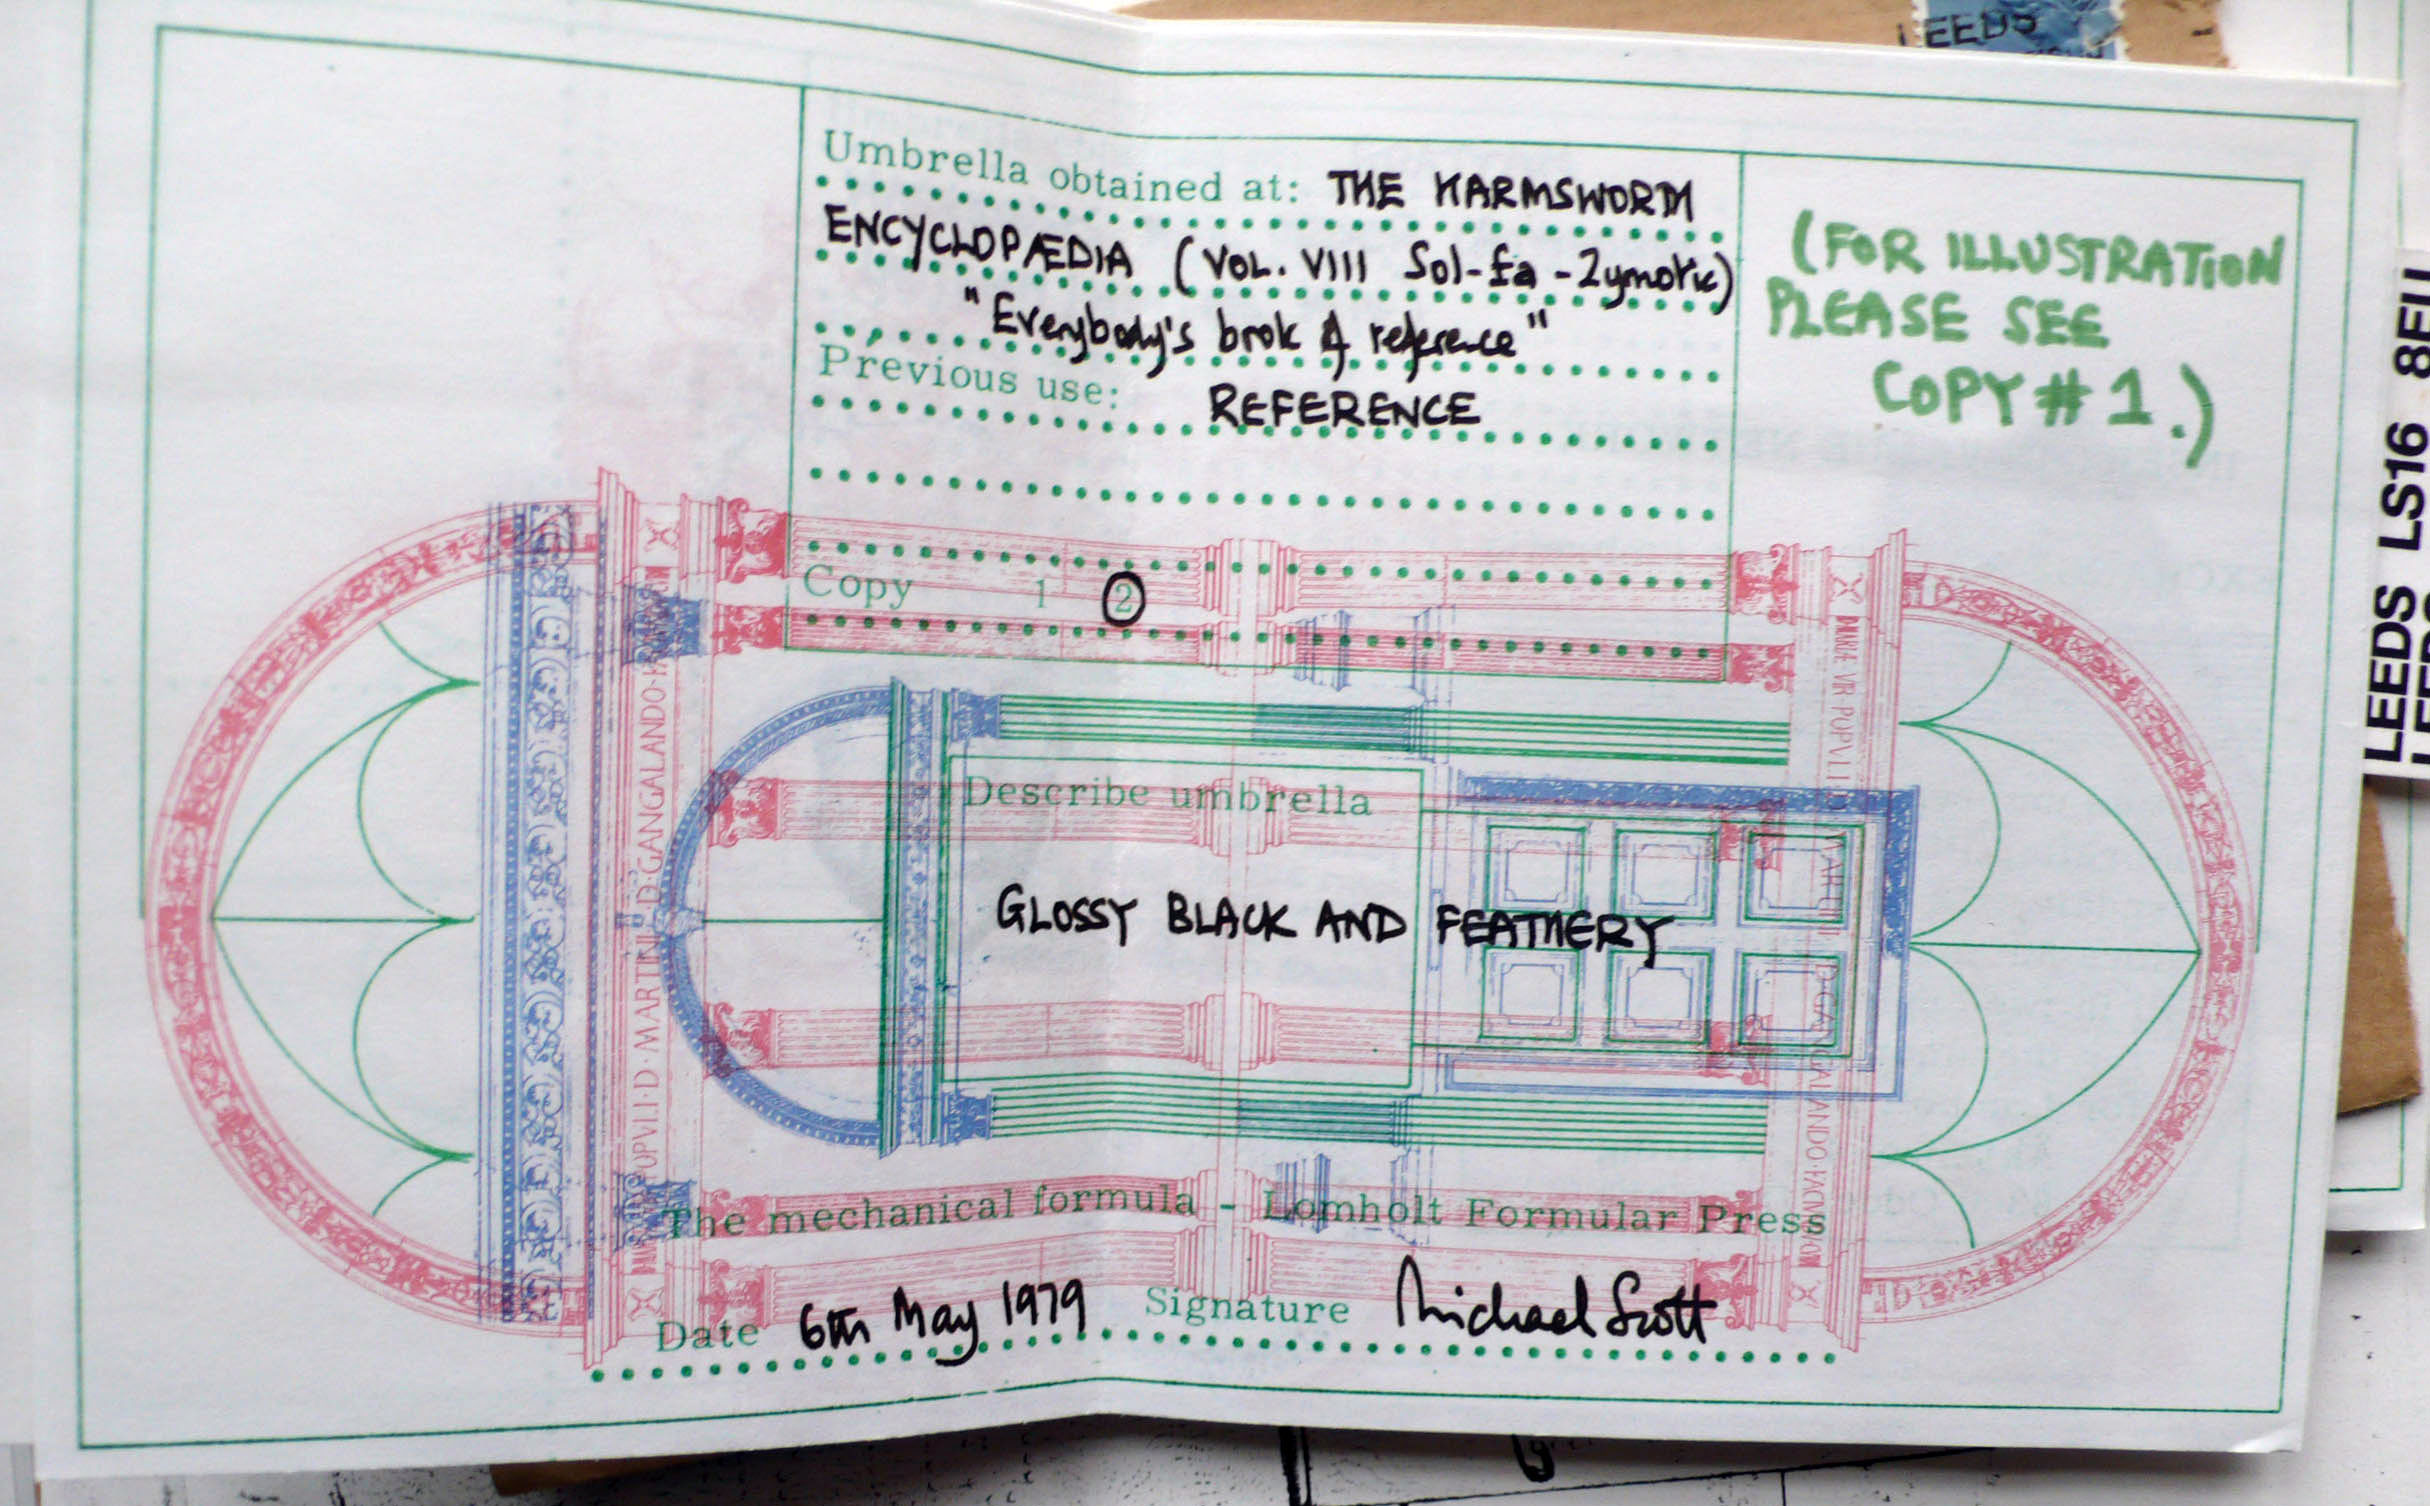 LEEDS
Umbrella obtained at: THE HARMSWORTH
ENCYCLOPÆDIA (VOL. VIII Sol-fa - Zymotic)
"Everybody's book of reference"
Previous use: REFERENCE
(FOR ILLUSTRATION
PLEASE SEE
COPY # 1.)
Copy 1 2
Describe umbrella
GLOSSY BLACK AND FEATHERY
The mechanical formula - Lomholt Formular Press
Date 6th May 1979 Signature Michael Scott
LEEDS LS16 8EU
LEEDS